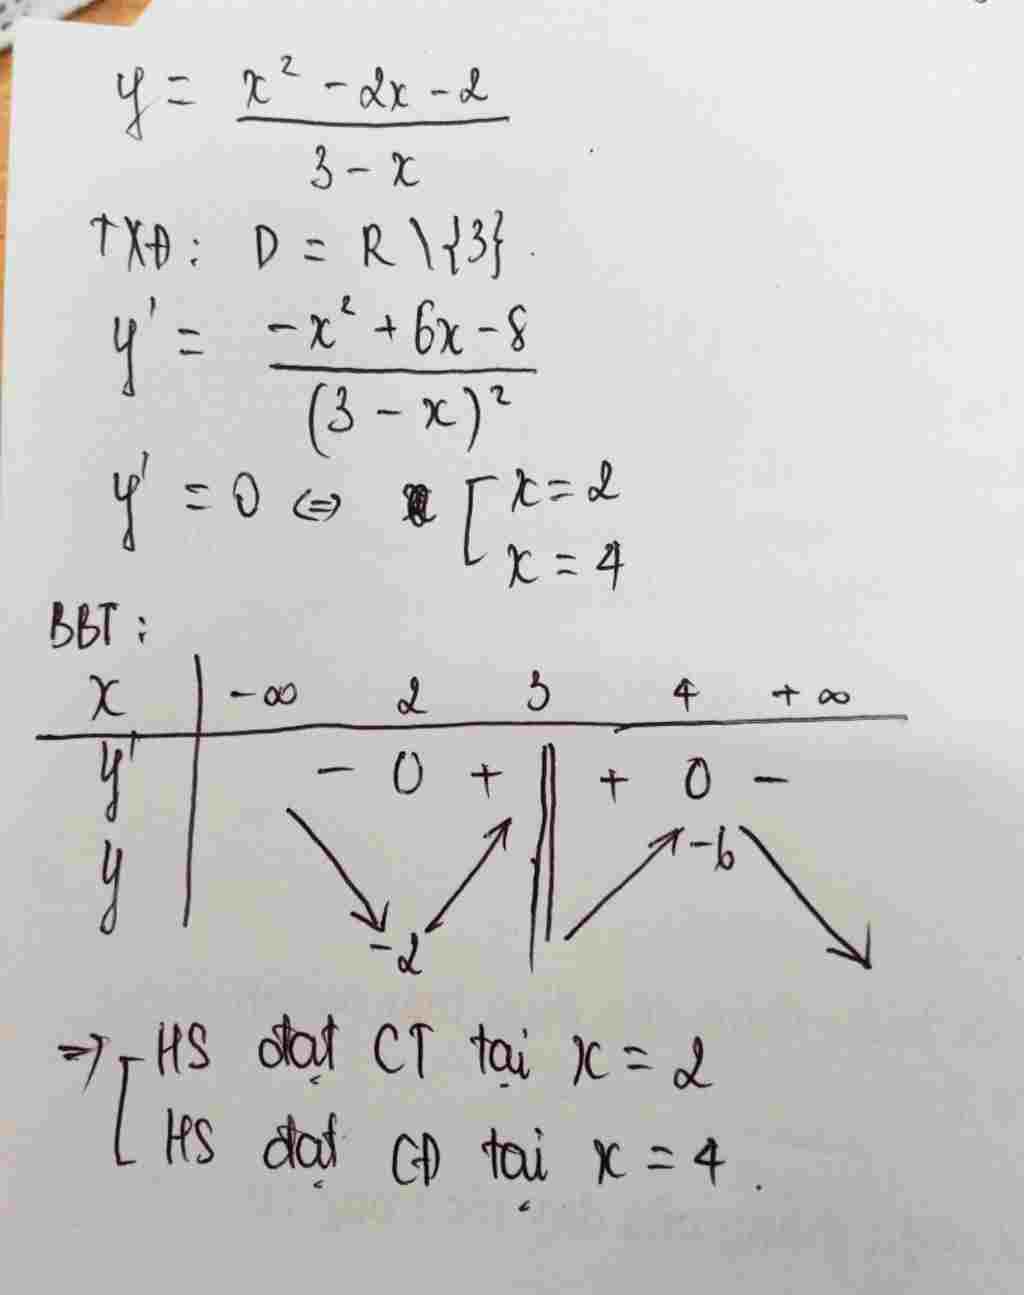 y = (x² - 2x - 2) / (3 - x)
TXĐ: D = R \ {3}.
y' = (-x² + 6x - 8) / (3 - x)²
y' = 0 ⇔ [ x = 2
x = 4
BBT:
x | -∞ 2 3 4 +∞
y' | - 0 + || + 0 -
y | -2 || -6
⇒ [ HS đạt CT tại x = 2
HS đạt CĐ tại x = 4.